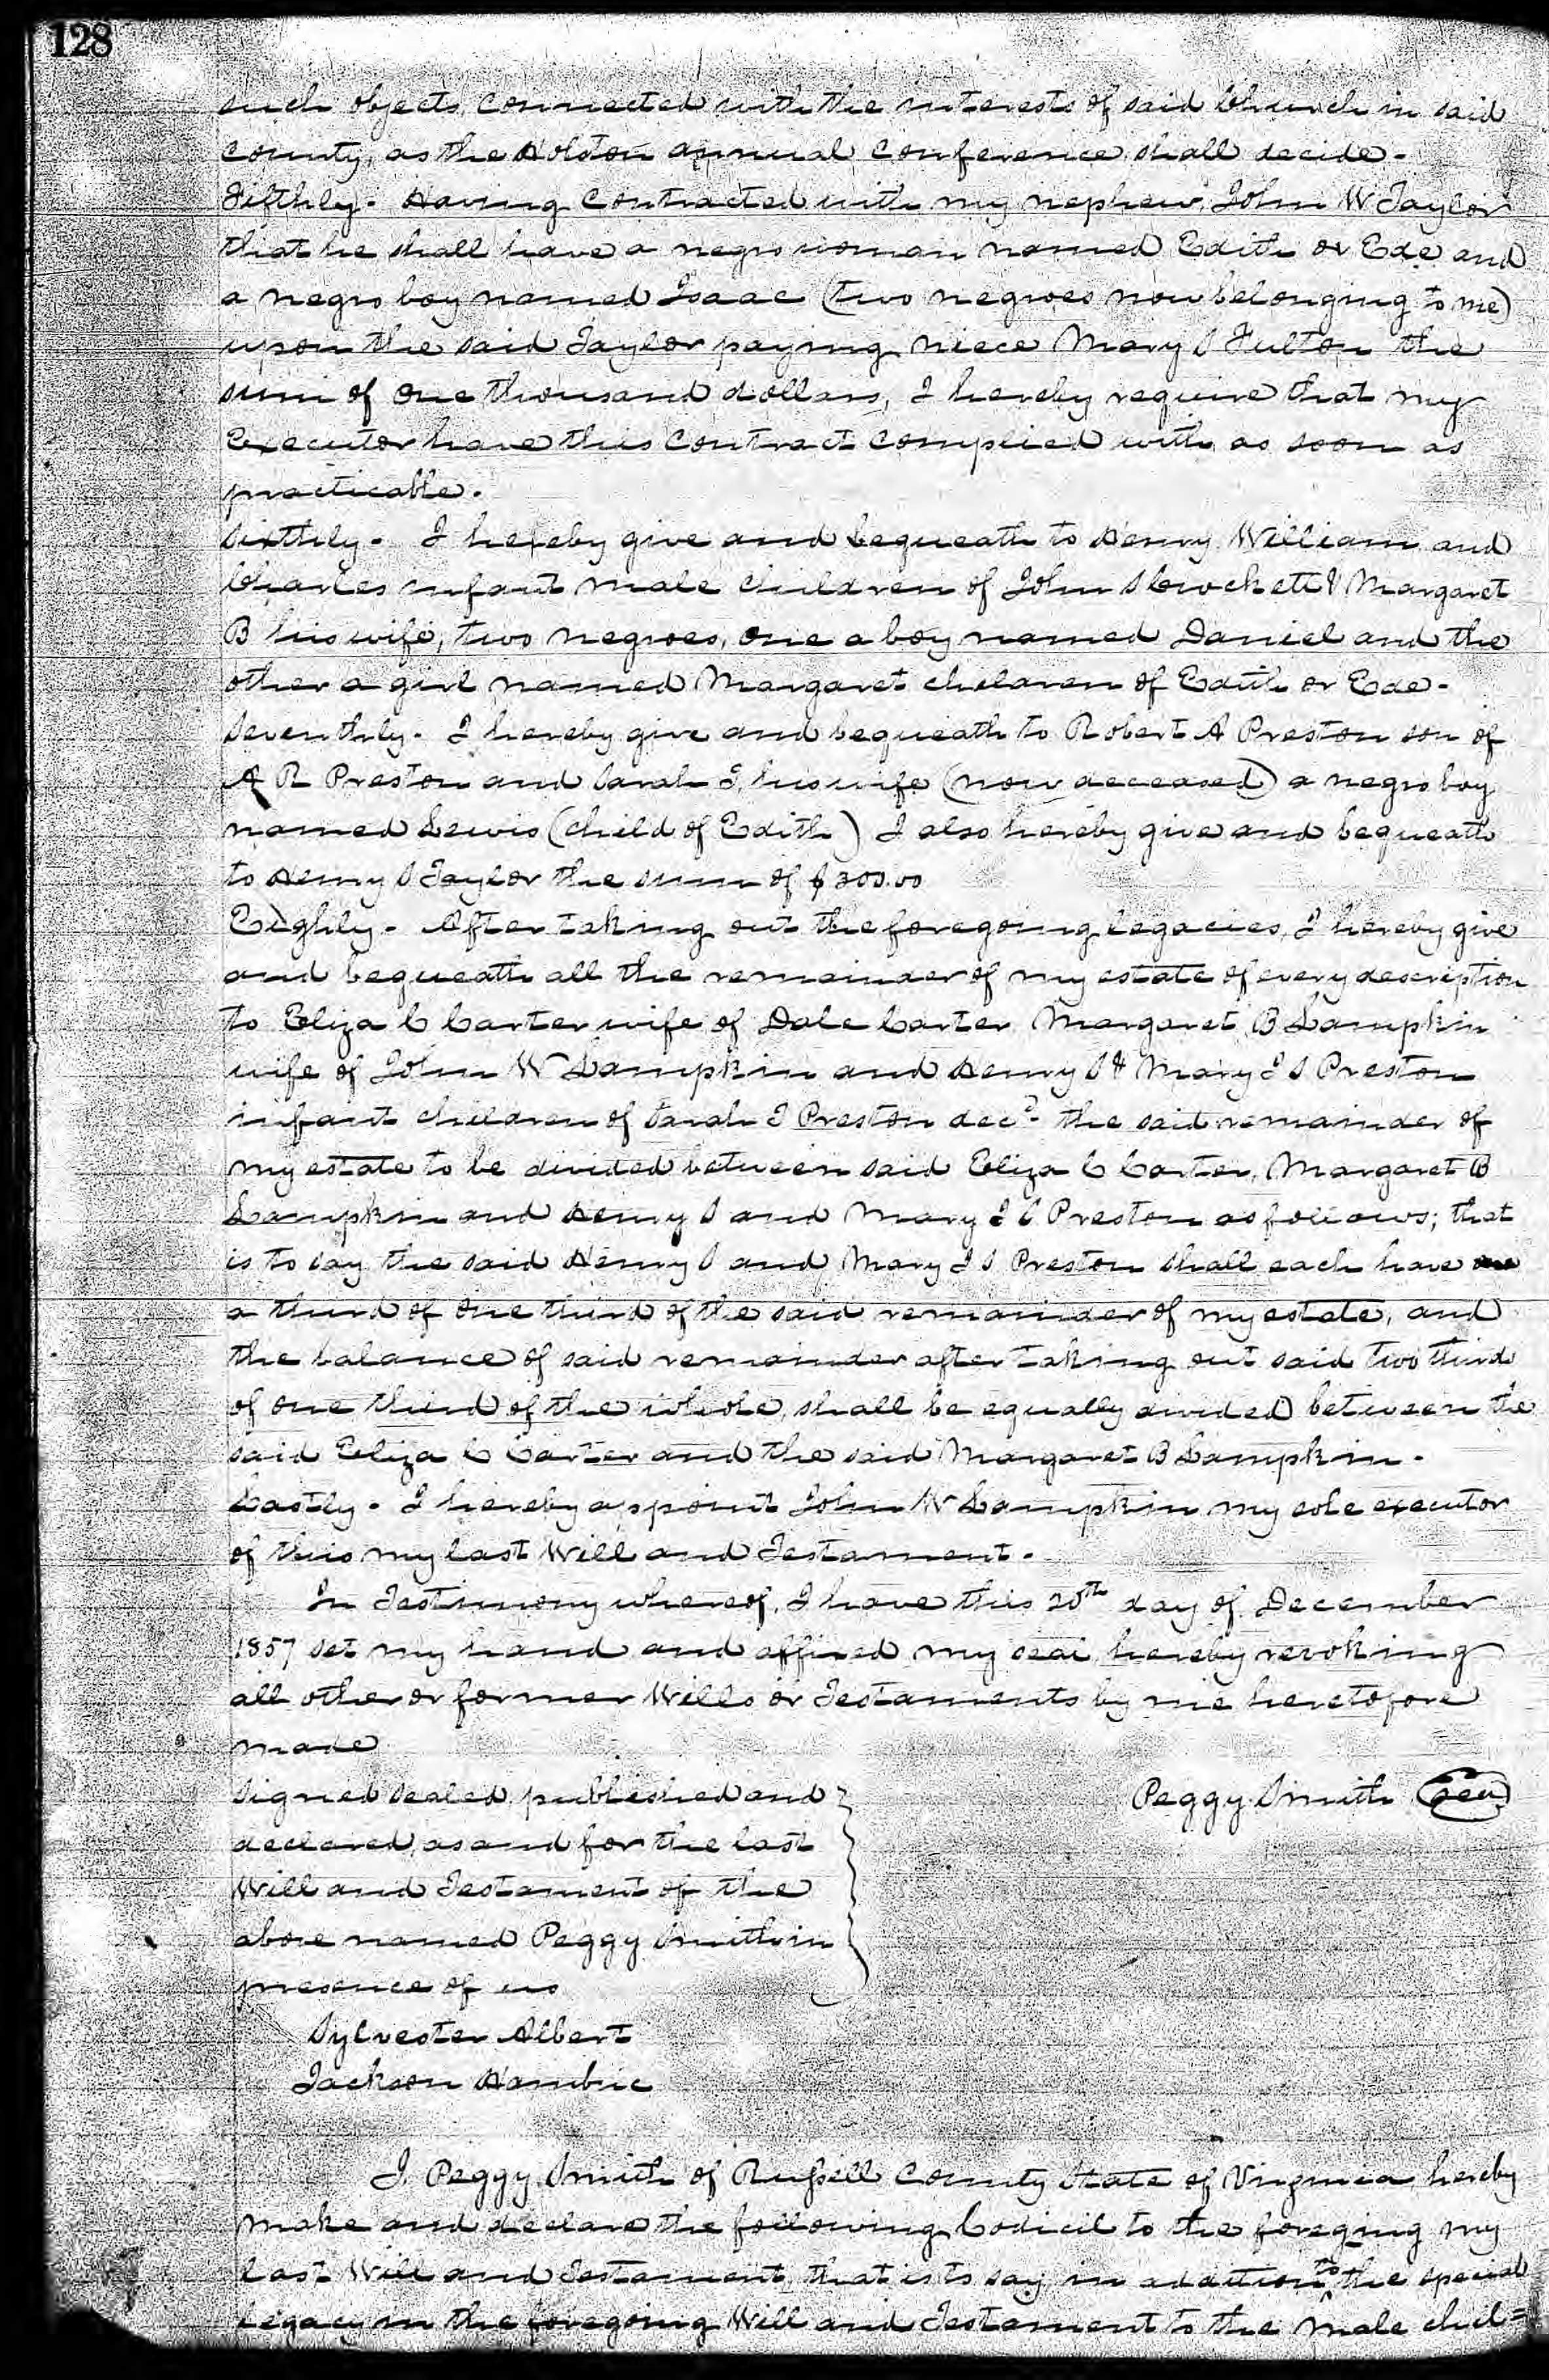 128
such objects, connected with the interests of said Church in said
County, as the Holston annual Conference shall decide.
Fifthly. Having Contracted with my nephew, John W Taylor
that he shall have a negro woman named Edith or Ede and
a negro boy named Isaac (two negroes now belonging to me)
upon the said Taylor paying niece Mary S Fulton the
sum of one thousand dollars, I hereby require that my
Executor have this Contract complied with as soon as
practicable.
Sixthly. I hereby give and bequeath to Henry William and
Charles infant male children of John S Crockett & Margaret
B his wife, two negroes, one a boy named Daniel and the
other a girl named Margaret children of Edith or Ede.
Seventhly. I hereby give and bequeath to Robert A Preston son of
A R Preston and Sarah J, his wife (now deceased) a negro boy
named Lewis (child of Edith) I also hereby give and bequeath
to Henry S Taylor the sum of $300.00
Eighly. After taking out the foregoing legacies, I hereby give
and bequeath all the remainder of my estate of every description
to Eliza C Carter wife of Dale Carter Margaret B Lampkin
wife of John W Lampkin and Henry S & Mary J S Preston
infant children of Sarah J Preston decd. the said remainder of
my estate to be divided between said Eliza C Carter, Margaret B
Lampkin and Henry S and Mary J S Preston as follows; that
is to say the said Henry S and Mary J S Preston shall each have
a third of one third of the said remainder of my estate, and
the balance of said remainder after taking out said two thirds
of one third of the whole, shall be equally divided between the
said Eliza C Carter and the said Margaret B Lampkin.
Lastly. I hereby appoint John W Lampkin my sole executor
of this my last Will and Testament.
In Testimony whereof, I have this 20th day of December
1857 set my hand and affixed my seal hereby revoking
all other or former Wills or Testaments by me heretofore
made
Signed sealed published and
Peggy Smith Seal
declared, as and for the last
Will and Testament of the
above named Peggy Smith in
presence of us
Sylvester Albert
Jackson Hambric
I, Peggy Smith of Russell County State of Virginia hereby
make and declare the following Codicil to the foreging my
last Will and Testament, that is to say in addition to the special
legacy in the foregoing Will and Testament to the male chil=